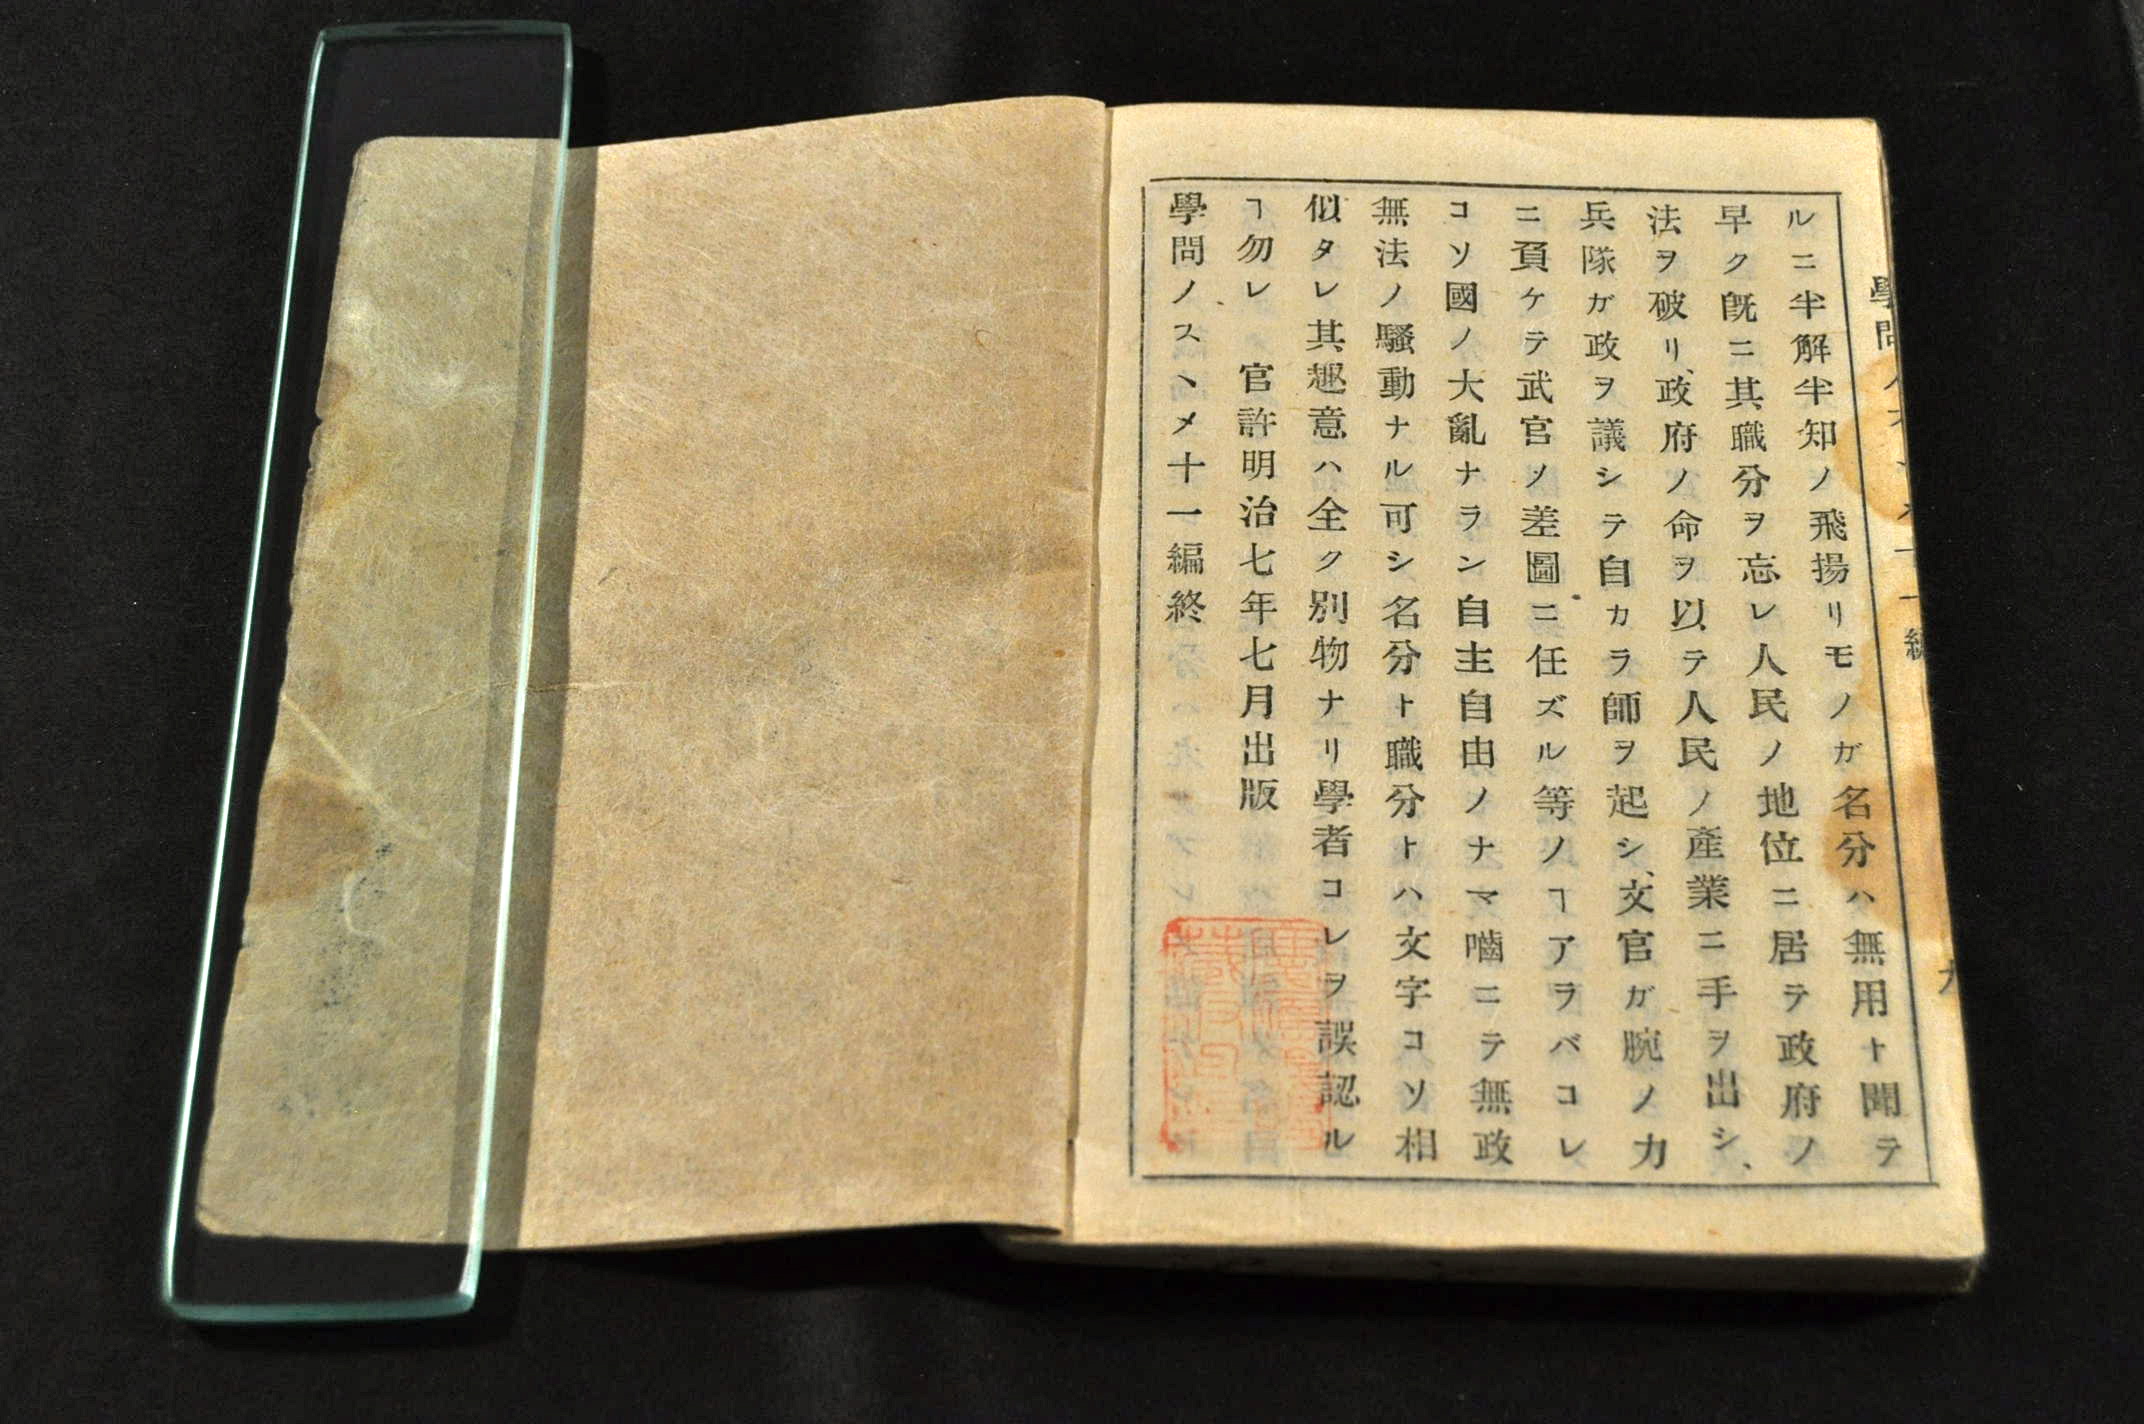 ルニ半解半知ノ飛揚リモノガ名分ハ無用ト聞テ
早ク旣ニ其職分ヲ忘レ人民ノ地位ニ居テ政府ノ
法ヲ破リ、政府ノ命ヲ以テ人民ノ產業ニ手ヲ出シ、
兵隊ガ政ヲ議シテ自カラ師ヲ起シ、文官ガ腕ノ力
ニ負ケテ武官ノ差圖ニ任ズル等ノヿアラバコレ
コソ國ノ大亂ナラン自主自由ノナマ嚙ニテ無政
無法ノ騷動ナル可シ名分ト職分トハ文字コソ相
似タレ其趣意ハ全ク別物ナリ學者コレヲ誤認ル
ヿ勿レ 官許明治七年七月出版
學問ノスヽメ十一編終